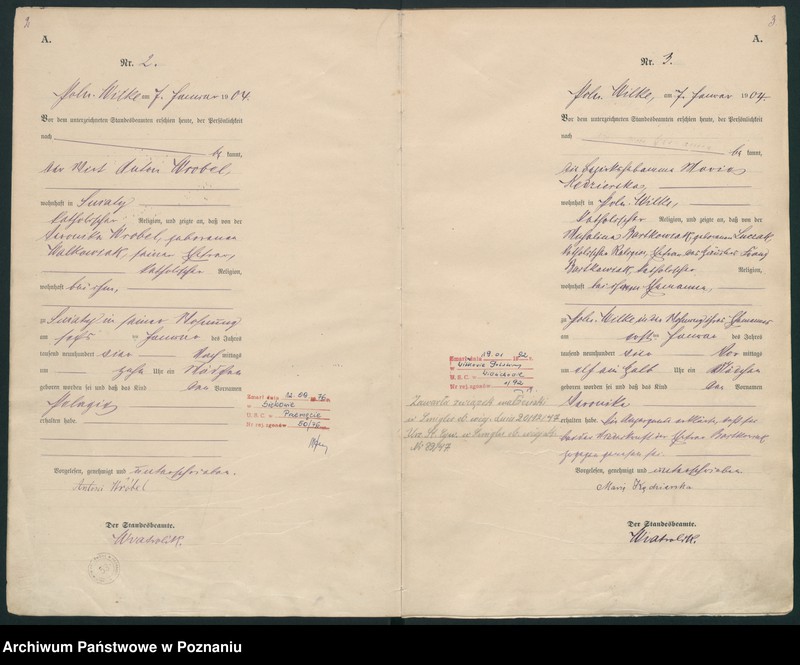 2
A.
Nr. 2.
Poln. Wilke am 7. Januar 1904.
Vor dem unterzeichneten Standesbeamten erschien heute, der Persönlichkeit
nach
be kannt,
der Wirt Anton Wrobel,
wohnhaft in
katholischer Religion, und zeigte an, daß von der
Veronika Wrobel, geborenen
Walkowiak, seiner Ehefrau,
katholischer Religion,
wohnhaft bei ihm,
zu in seiner Wohnung
am Januar des Jahres
tausend neunhundert vier Nach mittags
um Uhr ein Mädchen
geboren worden sei und daß das Kind den Vornamen
Pelagia
erhalten habe
Vorgelesen, genehmigt und unterschrieben.
Antoni Wróbel
Der Standesbeamte.
Zmarł dnia 12.09.1976
w
U. S. C. w
Nr rej. zgonów 50/76
3
A.
Nr. 3.
Poln. Wilke, am 7. Januar 1904.
Vor dem unterzeichneten Standesbeamten erschien heute, der Persönlichkeit
nach
be kannt,
die Bezirkshebamme Maria
Kędzierska,
wohnhaft in Poln. Wilke,
katholischer Religion, und zeigte an, daß von der
Bartkowiak, geborenen
katholischer Religion, Ehefrau des Häuslers Franz
Bartkowiak, katholischer Religion,
wohnhaft bei ihrem Ehemanne,
zu Poln. Wilke in der Wohnung ihres Ehemannes
am Januar des Jahres
tausend neunhundert vier Vor mittags
um elf ein halb Uhr ein Mädchen
geboren worden sei und daß das Kind den Vornamen
Veronika
erhalten habe. Die Anzeigende erklärte, daß sie
bei der Niederkunft der Ehefrau Bartkowiak
zugegen gewesen sei.
Vorgelesen, genehmigt und unterschrieben.
Marie Kędzierska
Der Standesbeamte.
Zmarł dnia 19.01.1992 r.
w
U. S. C. w
Nr rej. zgonów 4/92
Zawarła związek małżeński
w Śmiglu
Archiwum Państwowe w Poznaniu